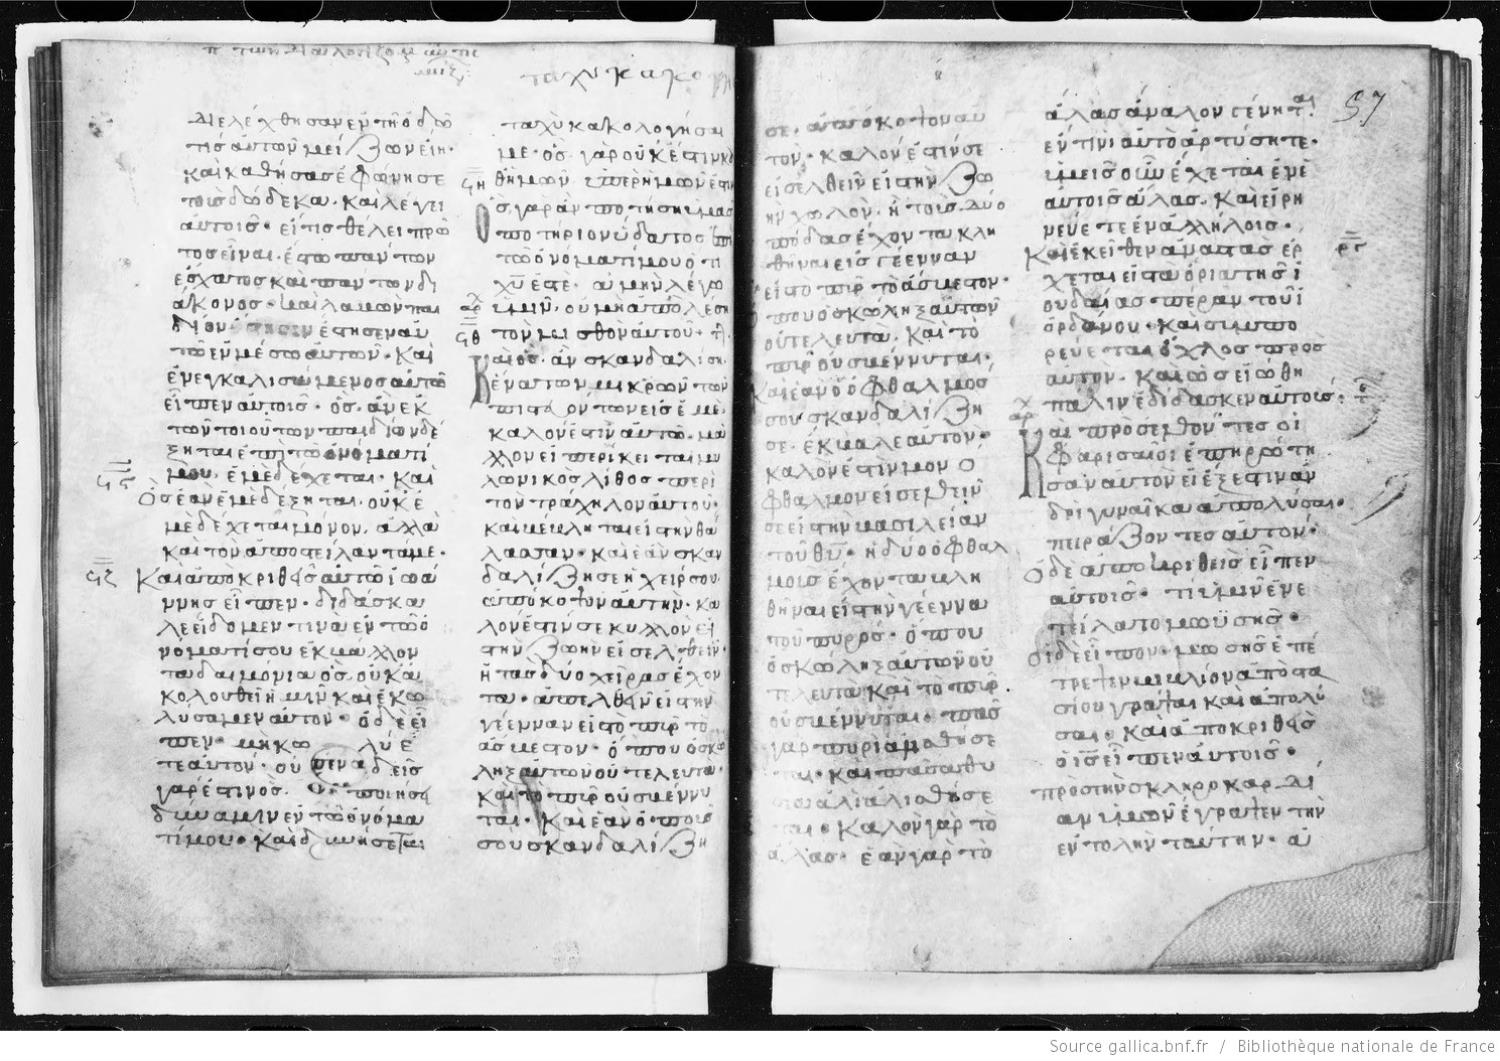 διελέχθησαν ἐν τῇ ὁδῶ
τίς αὐτῶν μείζων εἴη·
καὶ καθήσας ἐφώνησε
τοὺς δώδεκα· καὶ λέγει
αὐτοῖς· εἴ τις θέλει πρῶ
τος εἶναι, ἔσται πάντων
ἔσχατος καὶ πάντων δι
άκονος· καὶ λαβὼν παι
δίον ἔστησεν αὐ
τῶ ἐν μέσω αὐτῶν· καὶ
ἐνεγκαλισάμενος αὐτὸ
εἶπεν αὐτοῖς· ὃς ἂν ἓν
τῶν τοιούτων παιδίων δέ
ξηται ἐπὶ τῶ ὀνόματί
μου, ἐμὲ δέχεται· καὶ
ὃς ἐὰν ἐμὲ δέξηται, οὐκ ἐ
μὲ δέχεται μόνον, ἀλλὰ
καὶ τὸν ἀποστείλαντά με·
καὶ ἀποκριθεὶς αὐτῶ ἰωά
ννης εἶπεν· διδάσκα
λε εἴδομεν τινα ἐν τῶ ὀ
νόματί σου ἐκβάλλον
τα δαιμόνια ὃς οὐκ ἀ
κολουθεῖ ἡμῖν καὶ ἐκω
λύσαμεν αὐτόν· ὁ δὲ εἶ
πεν· μὴ κωλύε
τε αὐτόν· οὐδεὶς
γάρ ἐστιν ὃς ποιήσει
δύναμιν ἐν τῶ ὀνόμα
τί μου· καὶ δυνήσεται
ταχὺ κακολογῆσαι
με· ὃς γὰρ οὐκ ἔστιν κα
θ ἡμῶν ὑπὲρ ἡμῶν ἐστιν
ὃς γὰρ ἂν ποτήση ὑμᾶς
ποτήριον ὕδατος ἐπὶ
τῶ ὀνόματί μου ὅτι
χῦ ἐστέ· ἀμὴν λέγω
ὑμῖν, οὐ μὴ ἀπολέση
τὸν μισθὸν αὐτοῦ·
καὶ ὃς ἂν σκανδαλίση
ἕνα τῶν μικρῶν τῶν
πιστευόντων εἰς ἐμέ·
καλόν ἐστιν αὐτῶ μᾶ
λλον εἰ περίκειται μυ
λωνικὸς λίθος περὶ
τὸν τράχηλον αὐτοῦ·
καὶ βέβληται εἰς τὴν θά
λασσαν· καὶ ἐὰν σκαν
δαλίζη σε ἡ χείρ σου
ἀπόκοψον αὐτήν· κα
λόν ἐστίν σε κυλλὸν εἰ
ς τὴν ζωὴν εἰσελθεῖν·
ἢ τὰς δύο χεῖρας ἔχον
τα· ἀπελθεῖν εἰς τὴν
γέενναν εἰς τὸ πῦρ τὸ
ἄσβεστον· ὅπου ὁ σκώ
ληξ αὐτῶν οὐ τελευτᾶ·
καὶ τὸ πῦρ οὐ σβέννυ
ται· καὶ ἐὰν ὁ πούς
σου σκανδαλίζη
σε· ἀπόκοψον αὐ
τόν· καλόν ἐστίν σε
εἰσελθεῖν εἰς τὴν ζω
ὴν χωλὸν ἢ τοὺς δύο
πόδας ἔχοντα κλη
θῆναι εἰς γέενναν
εἰς τὸ πῦρ τὸ ἄσβεστον·
ὅπου ὁ σκώληξ αὐτῶν
οὐ τελευτᾶ· καὶ τὸ
πῦρ οὐ σβέννυται·
καὶ ἐὰν ὁ ὀφθαλμός
σου σκανδαλίζη
σε· ἔκβαλε αὐτόν·
καλόν ἐστιν μονό
φθαλμον εἰσελθεῖν
σε εἰς τὴν βασιλείαν
τοῦ θυ· ἢ δύο ὀφθαλ
μοὺς ἔχοντα βλη
θῆναι εἰς τὴν γέεννα
τοῦ πυρός· ὅπου
ὁ σκώληξ αὐτῶν οὐ
τελευτᾶ καὶ τὸ πῦρ
οὐ σβέννυται· πᾶς
γὰρ πυρὶ ἁλισθήσε
ται· καὶ πᾶσα θυ
σία ἁλὶ ἁλισθήσε
ται· καλὸν γὰρ τὸ
ἅλας· ἐὰν γὰρ τὸ
ἅλας ἄναλον γένηται
ἐν τίνι αὐτὸ ἀρτύσητε·
ὑμεῖς οὖν ἔχεται ἐν ἑ
αυτοῖς ἅλας· καὶ εἰρη
νεύετε ἐν ἀλλήλοις·
καὶ ἐκεῖθεν ἀναστὰς ἔρ
χεται εἰς τὰ ὅρια τῆς ἰ
ουδαίας πέραν τοῦ ἰ
ορδάνου· καὶ συμπο
ρεύεται ὁ ὄχλος πρὸς
αὐτόν· καὶ ὡς εἰώθη
πάλιν ἐδίδασκεν αὐτούς·
καὶ προσελθόντες οἱ
φαρισαῖοι ἐπηρώτη
σαν αὐτὸν εἰ ἔξεστιν ἀν
δρὶ γυναῖκα ἀπολῦσαι·
πειράζοντες αὐτόν·
ὁ δὲ ἀποκριθεὶς εἶπεν
αὐτοῖς· τί ὑμῖν ἐνε
τείλατο μωϋσῆς·
οἱ δὲ εἶπον· μωσῆς ἐπέ
τρεψεν βιβλίον ἀποστα
σίου γράψαι καὶ ἀπολῦ
σαι· καὶ ἀποκριθεὶς
ὁ ις εἶπεν αὐτοῖς·
πρὸς τὴν σκληροκαρδί
αν ὑμῶν ἔγραψεν τὴν
ἐντολὴν ταύτην· ἀ
57
Source gallica.bnf.fr / Bibliothèque nationale de France